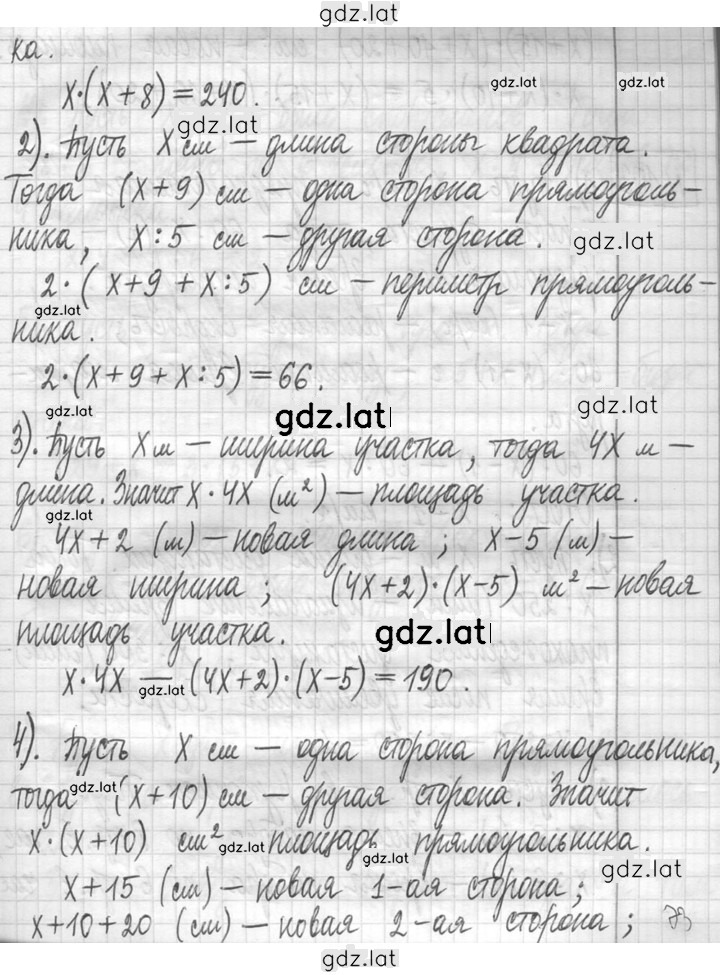 gdz.lat
ка.
x·(x+8)=240.
gdz.lat
gdz.lat
gdz.lat
2). Пусть x см — длина стороны квадрата.
Тогда (x+9) см — одна сторона прямоуголь-
ника, x:5 см — другая сторона.
gdz.lat
2·(x+9+x:5) см — периметр прямоуголь-
gdz.lat
ника.
2·(x+9+x:5)=66.
gdz.lat
gdz.lat
gdz.lat
3). Пусть x м — ширина участка, тогда 4x м —
длина. Значит x·4x (м²) — площадь участка.
gdz.lat
4x+2 (м) — новая длина; x-5 (м) —
новая ширина; (4x+2)·(x-5) м² — новая
площадь участка.
gdz.lat
gdz.lat
x·4x — (4x+2)·(x-5)=190.
gdz.lat
4). Пусть x см — одна сторона прямоугольника,
тогда (x+10) см — другая сторона. Значит
gdz.lat
x·(x+10) см² площадь прямоугольника.
gdz.lat
gdz.lat
gdz.lat
x+15 (см) — новая 1-ая сторона;
x+10+20 (см) — новая 2-ая сторона;
gdz.lat